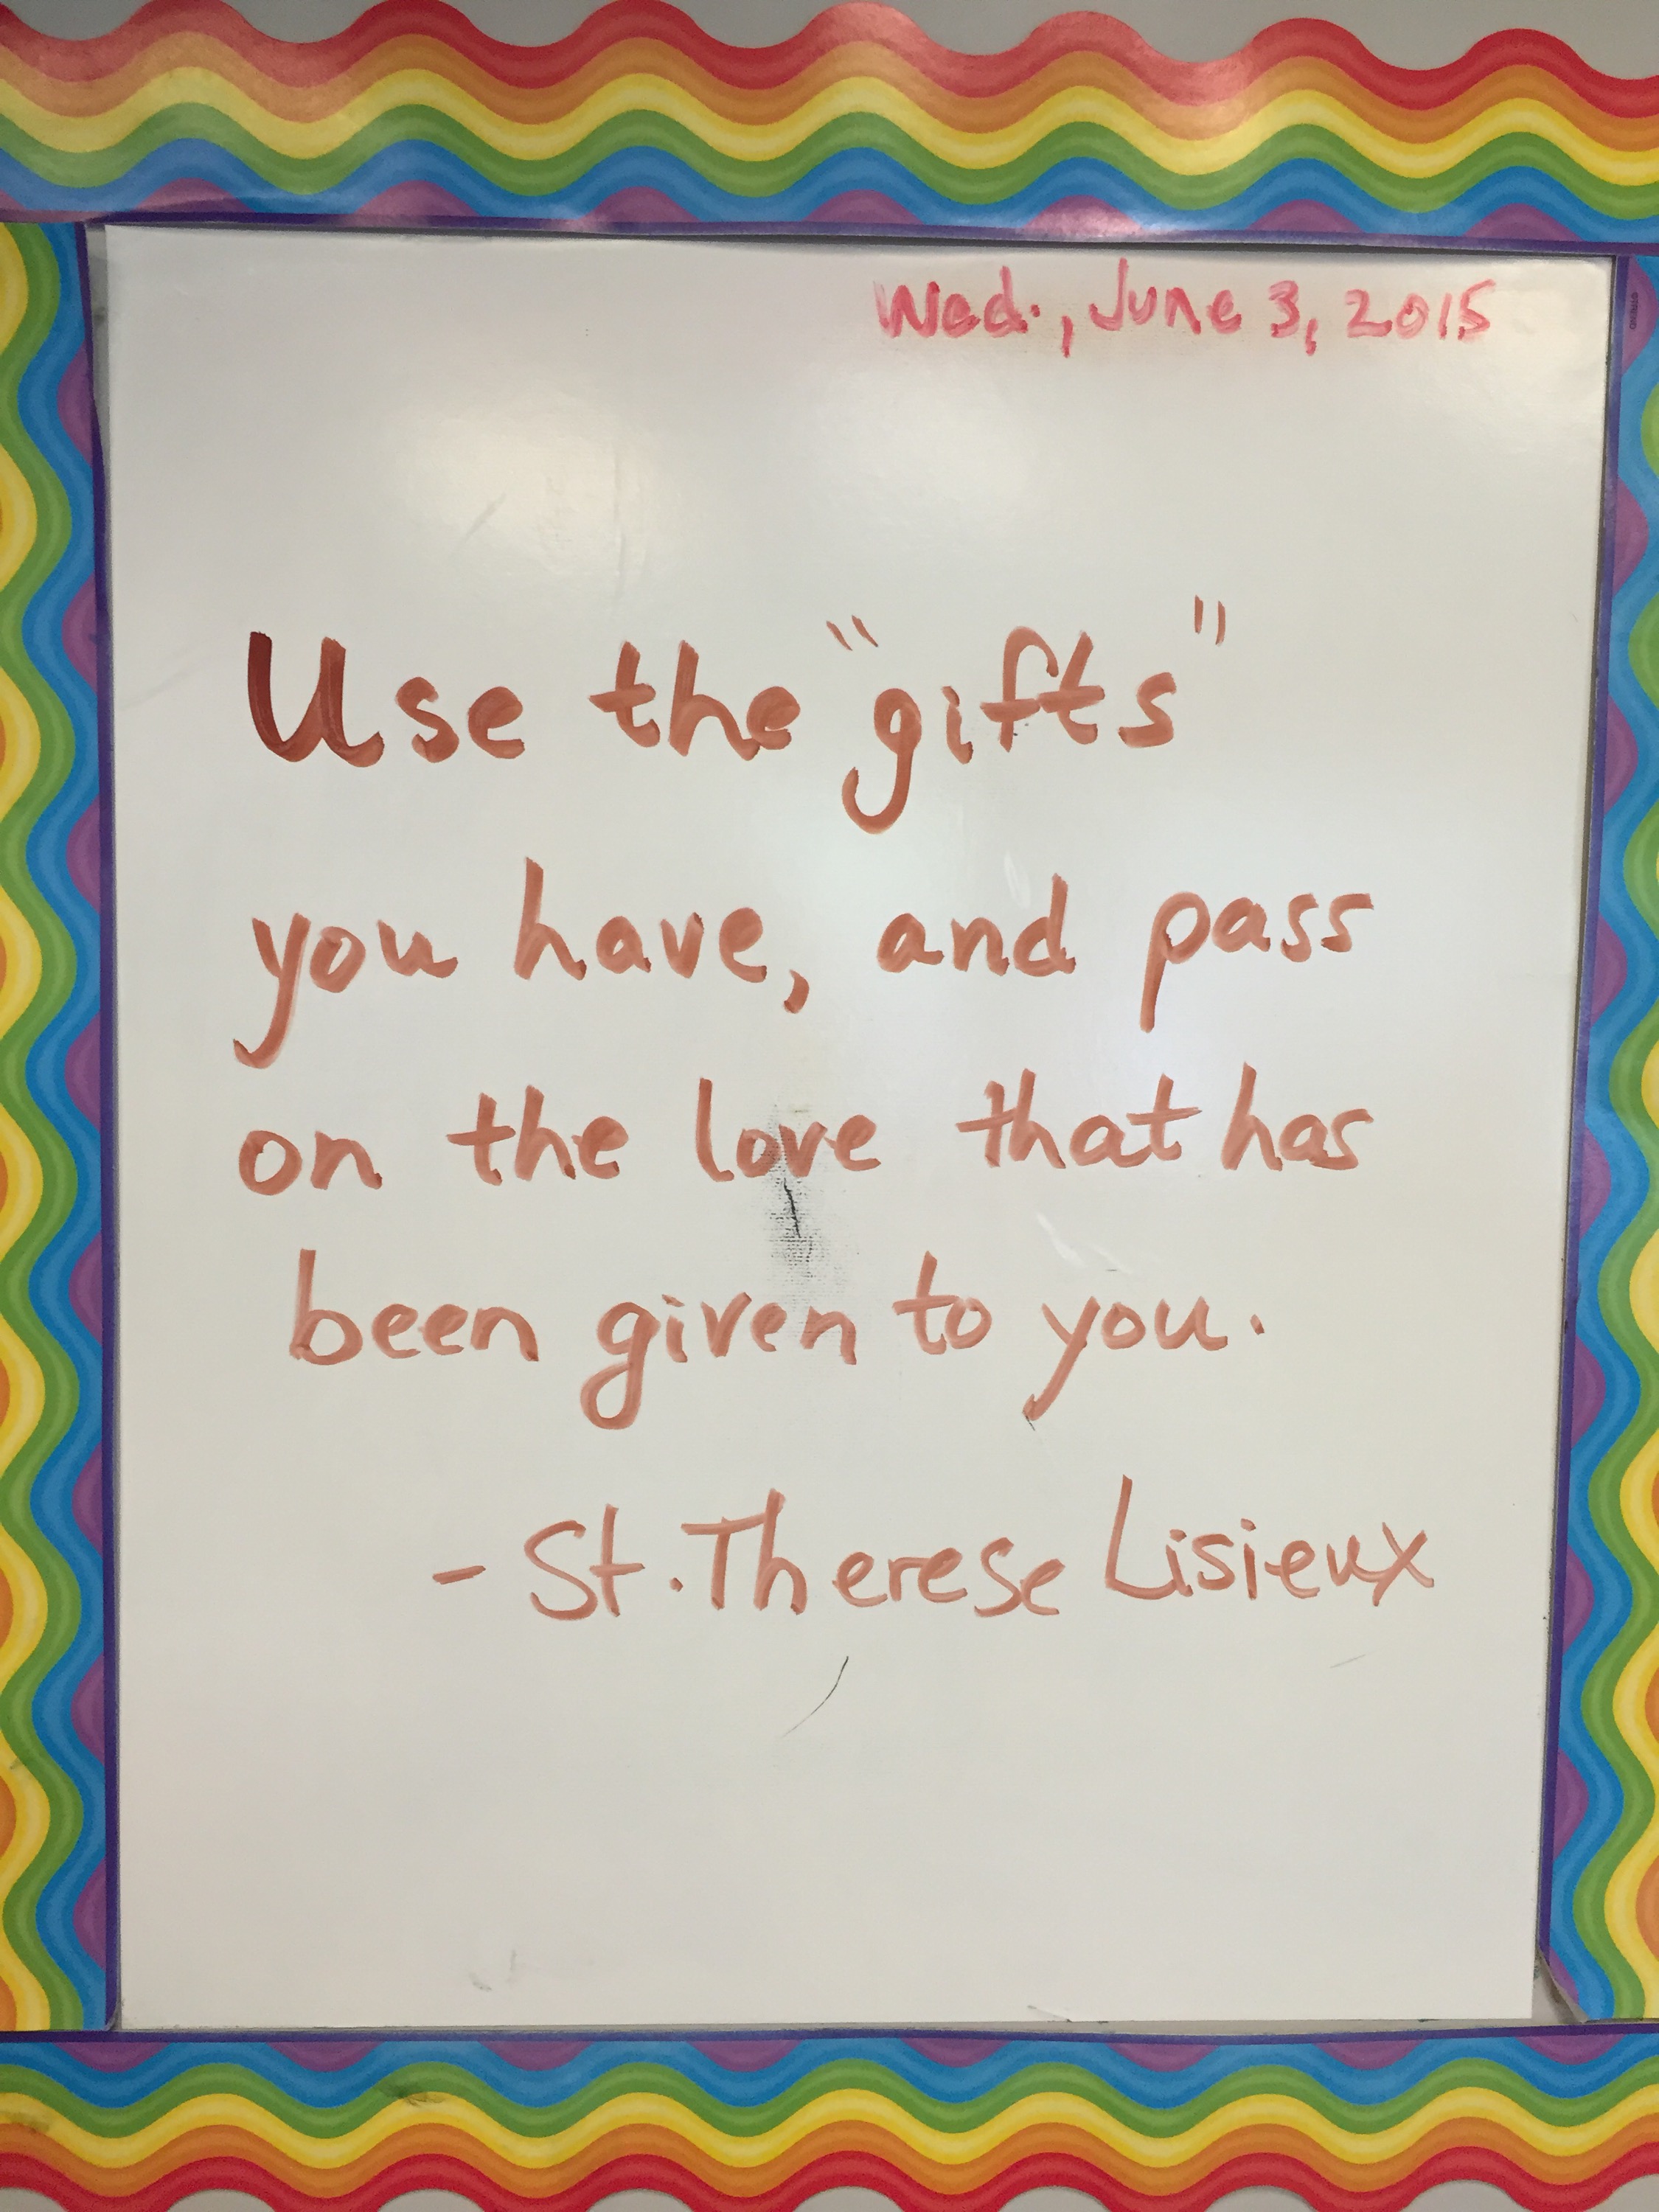 Wed., June 3, 2015
Use the "gifts"
you have, and pass
on the love that has
been given to you.
- St. Therese Lisieux